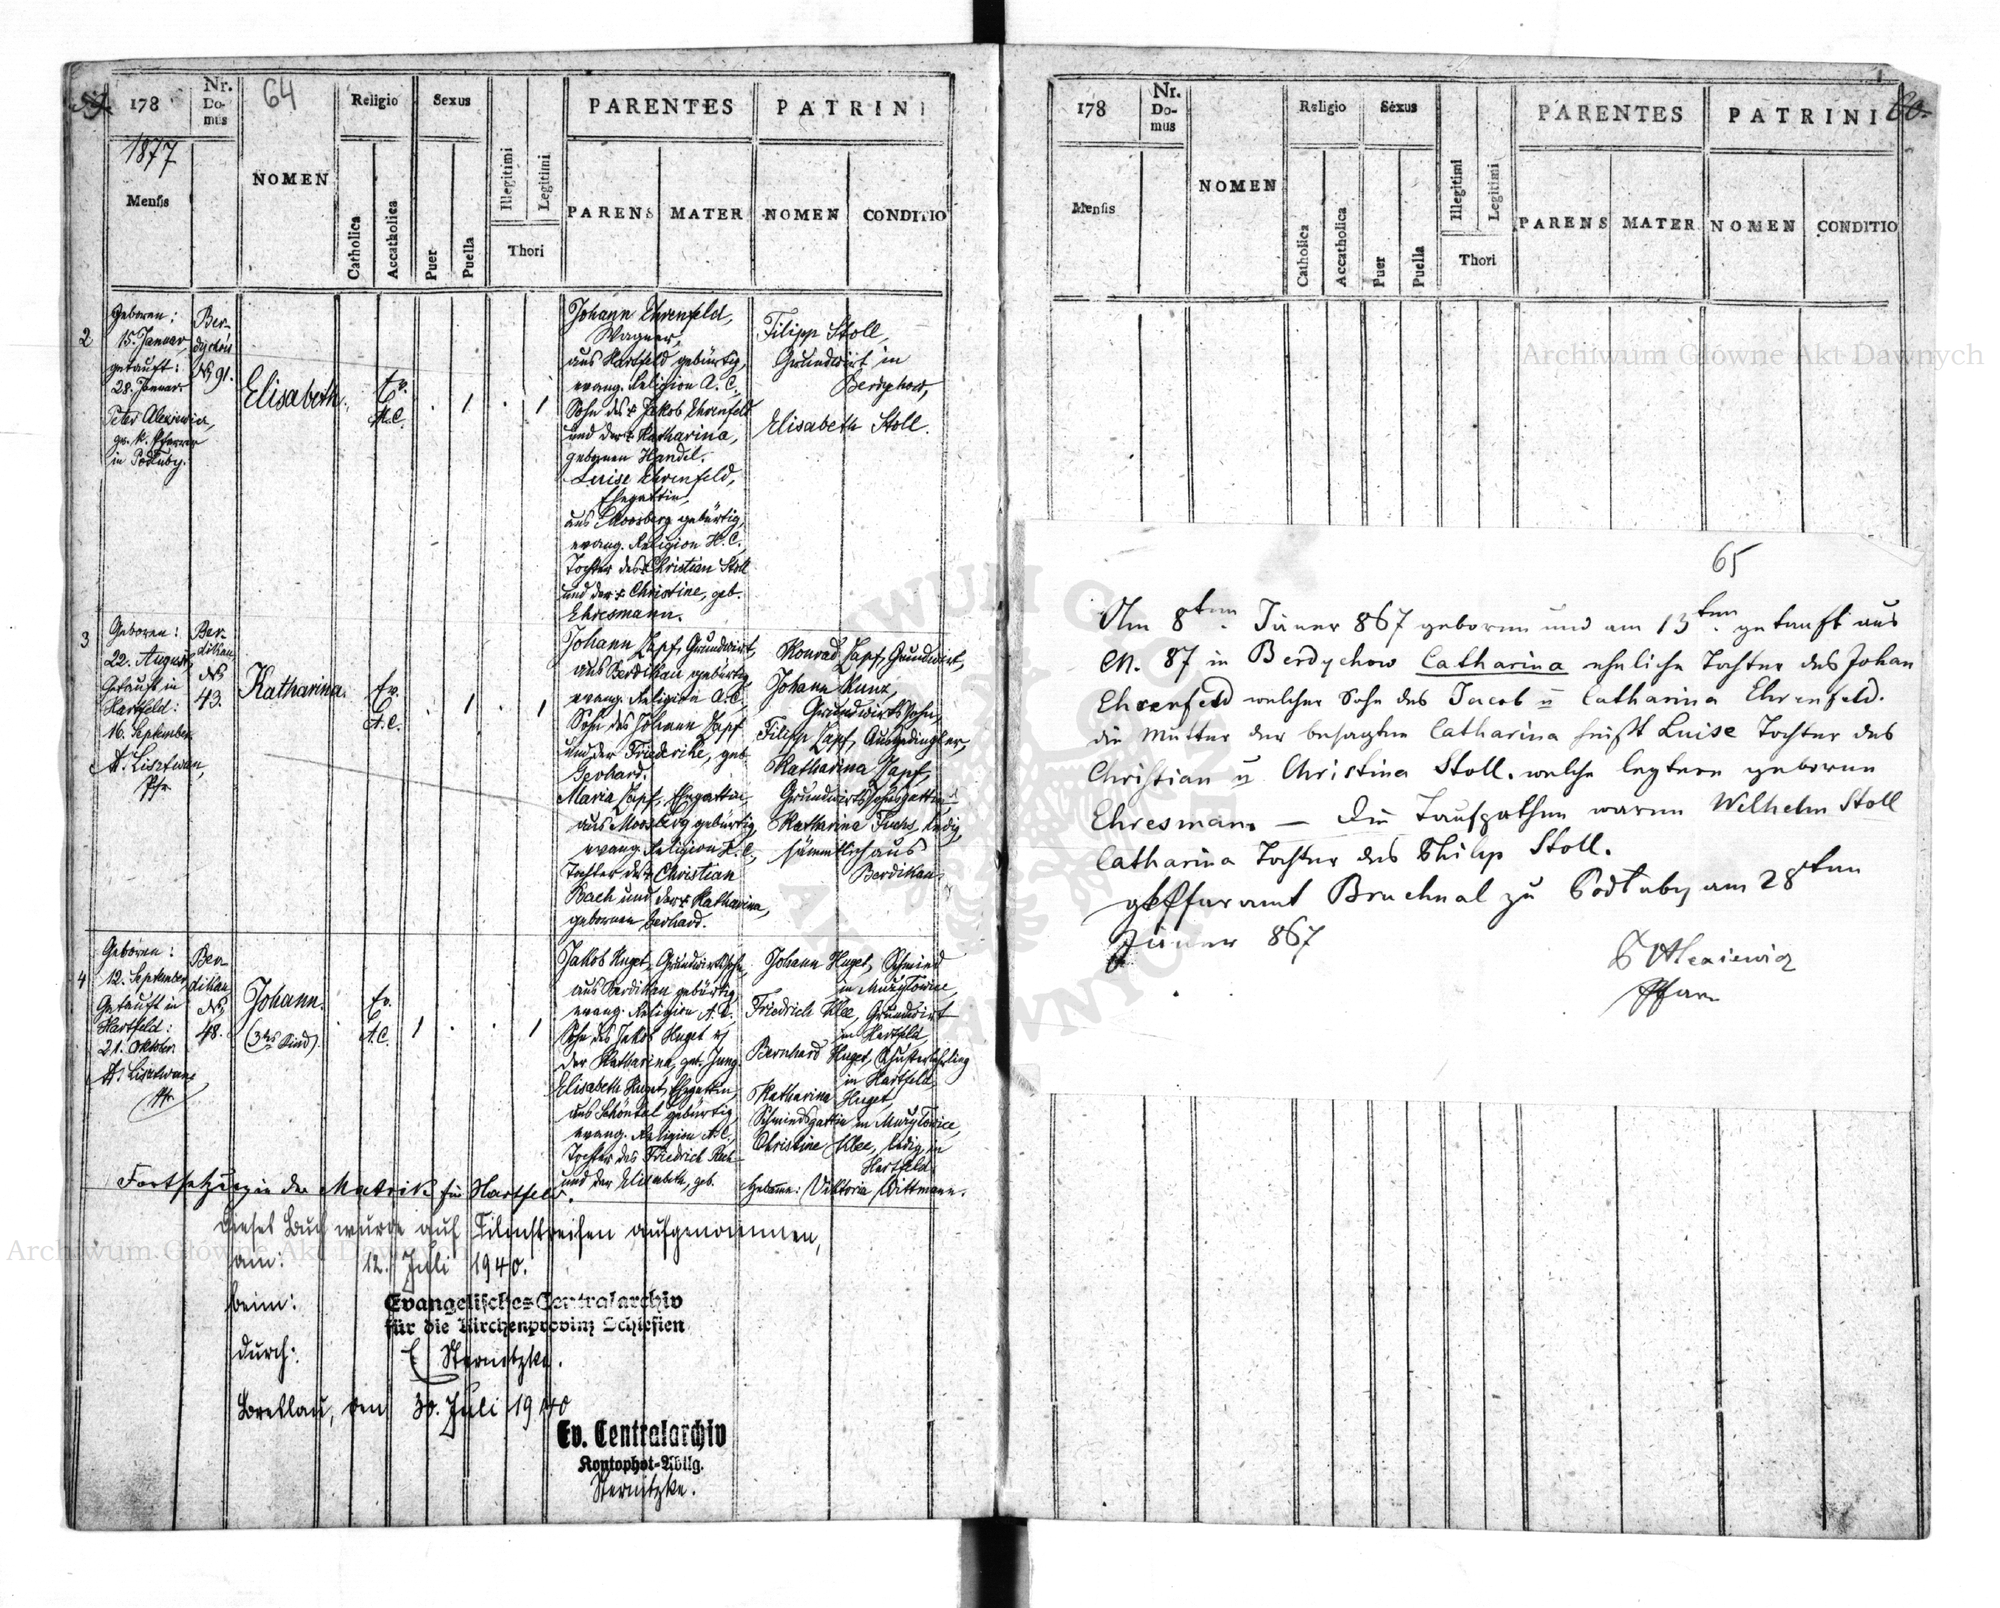 59.
178
Nr. Do- mus
64
Religio
Sexus
PARENTES
PATRINI
1877
Mensis
NOMEN
Catholica
Accatholica
Puer
Puella
Illegitimi
Legitimi
Thori
PARENS
MATER
NOMEN
CONDITIO
2
Geboren:
15. Januar,
getauft:
28. Januar
Peter Alexiewicz,
gr. k. Pfarrer
in Podłuby.
Ber-
dychów
№ 91.
Elisabeth.
Ev.
A.C.
. 1 . 1
Johann Ehrenfeld,
Wagner,
aus Hartfeld gebürtig,
evang. Religion A. C.,
Sohn des + Jakob Ehrenfeld
und der + Katharina,
gebornen Handel.
Luise Ehrenfeld,
Ehegattin,
aus Moosberg gebürtig,
evang. Religion H. C.,
Tochter des + Christian Stoll
und der + Christine, geb.
Ehresmann.
Filipp Stoll,
Grundwirt in
Berdychow,
Elisabeth Stoll.
3
Geboren:
22. August,
Getauft in
Hartfeld:
16. September
A. Lisztwan,
Pfr.
Ber-
dikau
№
43.
Katharina.
Ev.
A.C.
. 1 . 1
Johann Zapf, Grundwirt,
aus Berdikau gebürtig,
evang. Religion A.C.,
Sohn des Johann Zapf
und der Friederike, geb.
Gerhard.
Maria Zapf, Ehegattin,
aus Moosberg gebürtig,
evang. Religion H. C.,
Tochter des + Christian
Bach und der + Katharina,
gebornen Gerhard.
Konrad Zapf, Grundwirt,
Johann Kunz,
Grundwirtssohn,
Filipp Zapf, Ausgedingler,
Katharina Zapf,
Grundwirtssohnsgattin,
Katharina Fuchs, ledig,
sämmtlich aus
Berdikau.
4
Geboren:
12. September,
Getauft in
Hartfeld:
21. Oktober
A. Lisztwan,
Pfr.
Ber-
dikau
№
48.
Johann.
(3tes Kind).
Ev.
A.C.
1 . . 1
Jakob Huget, Grundwirtssohn,
aus Berdikau gebürtig,
evang. Religion A. C.,
Sohn des Jakob Huget u
der Katharina, geb. Jung.
Elisabeth Huget, Ehegattin,
aus Schöntal gebürtig,
evang. Religion A.C.,
Tochter des Friedrich
und der Elisabeth, geb.
Johann Huget, Schmied
in Mużyłowice,
Friedrich Klee, Grundwirt
in Hartfeld,
Bernhard Huget, Schusterlehrling
in Hartfeld,
Katharina Huget,
Schmiedsgattin in Mużyłowice,
Christine Klee, ledig, in
Hartfeld.
Hebamme: Viktoria Wittmann.
Fortsetzung in der Matrik für Hartfeld.
Dieses Buch wurde auf Filmstreifen aufgenommen,
am: 12. Juli 1940.
beim: Evangelisches Centralarchiv
für die Kirchenprovinz Schlesien
durch: E. Sternitzke.
Breslau, den 30. Juli 1940
Ev. Centralarchiv
Kontophot-Abtlg.
Sternitzke.
178
Nr. Do- mus
Religio
Sexus
PARENTES
PATRINI
60.
Mensis
NOMEN
Catholica
Accatholica
Puer
Puella
Illegitimi
Legitimi
Thori
PARENS
MATER
NOMEN
CONDITIO
65
Am 8ten Jäner 867 geboren und am 13ten getauft aus
CN. 87 in Berdychow Catharina eheliche Tochter des Johan
Ehrenfeld welcher Sohn des Jacob u Catharina Ehrenfeld.
die Mutter der besagten Catharina heißt Luise Tochter des
Christian u Christina Stoll. welche letztere geborene
Ehresman. — Die Taufpathen waren Wilhelm Stoll
Catharina Tochter des Philip Stoll.
gkPfarramt Bruchnal zu Podłuby am 28ten
Jäner 867
P Alexiewicz
Pfarr
Archiwum Główne Akt Dawnych
Archiwum Główne Akt Dawnych